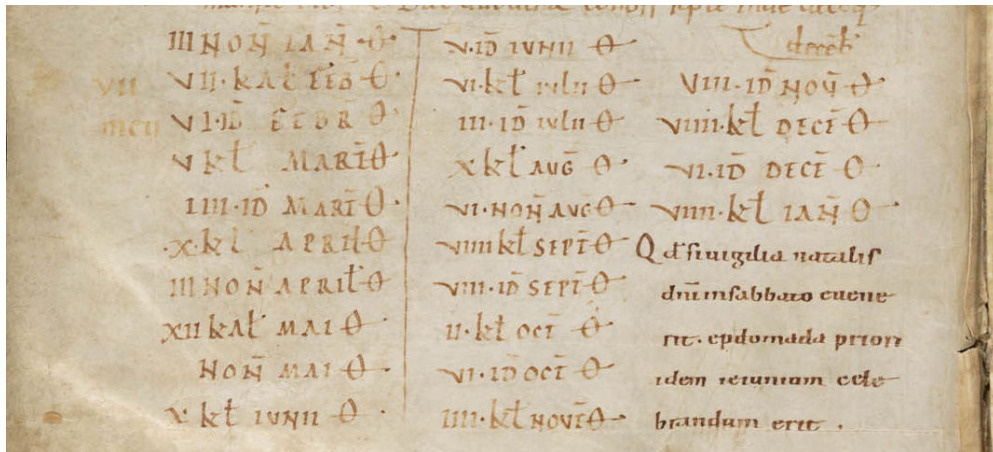 III NON̄ IAN̄ · Θ ·
VII · KAŁ FEB̄ Θ ·
VI · ID̄ FEBR̄ Θ ·
V KŁ MARR̄ Θ ·
IIII · ID̄ MARR̄ Θ ·
· X · KŁ APRIŁ Θ
III NON̄ APRIŁ Θ
XII KAŁ MAI Θ
NON̄ MAI Θ ·
X KŁ IUNII Θ ·
V · ID̄ IUNII Θ
VI · KŁ IULII Θ
III · ID̄ IULII Θ ·
X KŁ AUḠ Θ ·
VI · NON̄ AUḠ Θ
VIIII KŁ SEPT̄ Θ
VIII · ID̄ SEPT̄ Θ
II · KŁ OCT̄ Θ
VI · ID̄ OCT̄ Θ
IIII · KŁ NOVĒ Θ ·
deceb̄
VIII · ID̄ NOV̄ Θ
VIIII · KŁ DECĒ Θ
VI · ID̄ DECĒ Θ
VIIII · KŁ IAN̄ Θ
Qđ si uigilia natalis
dn̄i in sabbato euene
rit · epdomada priori
idem ieiunium cele
brandum erit ·